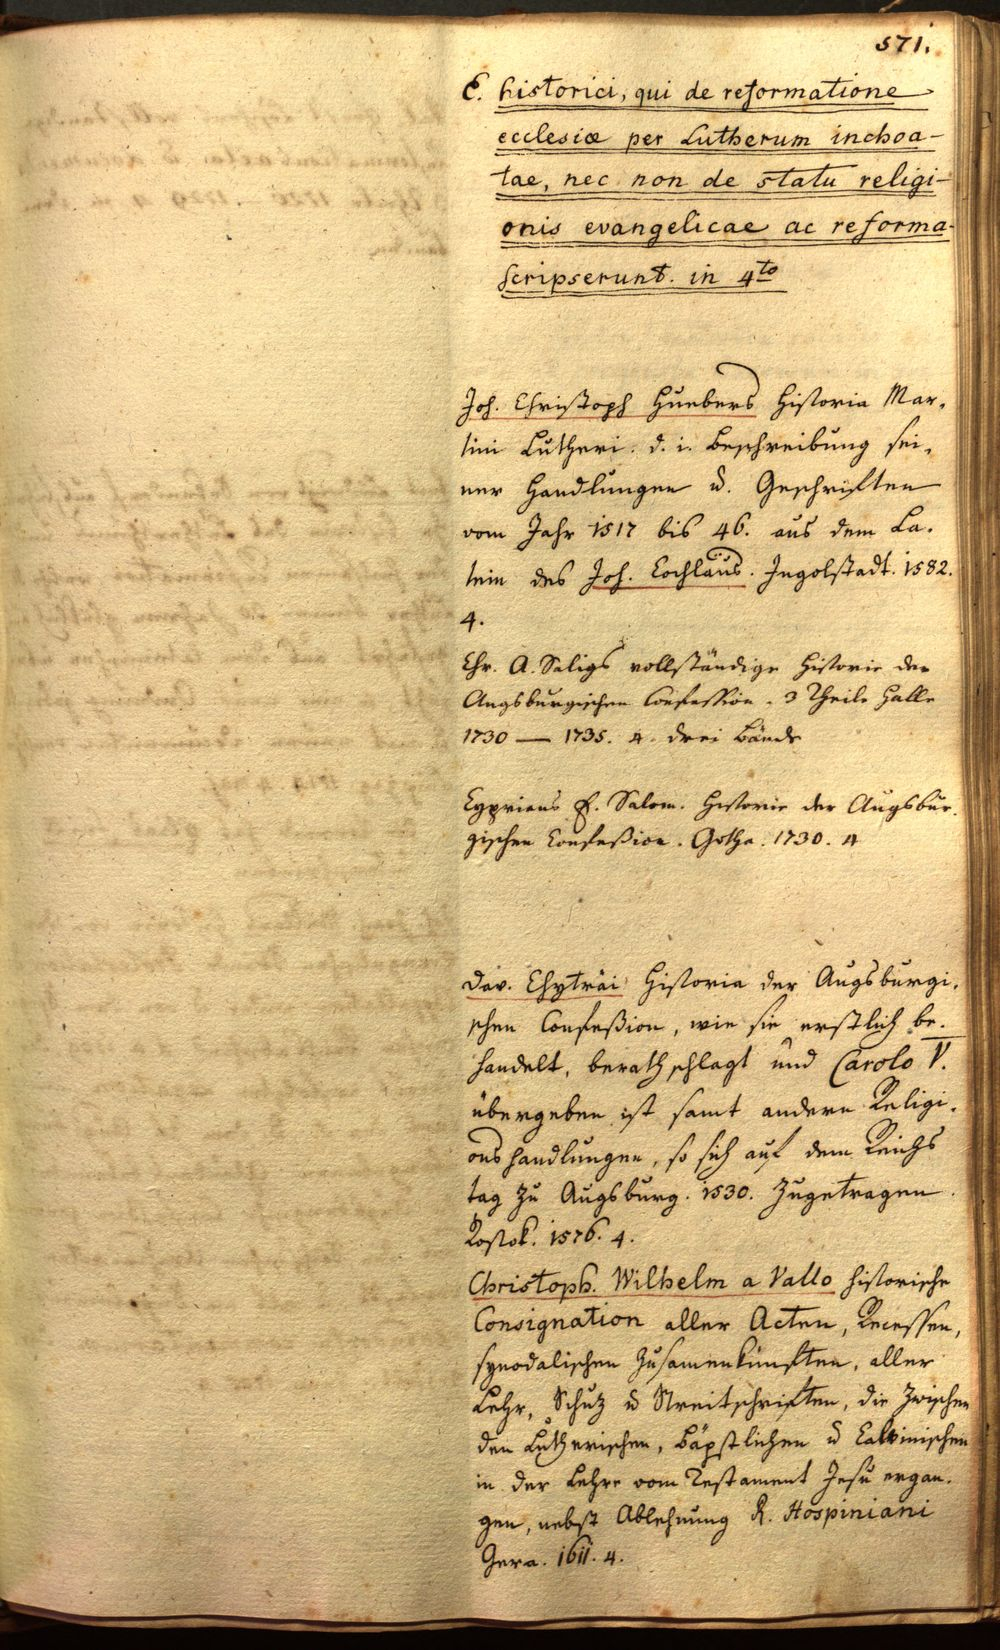 571.
E. historici, qui de reformatione
ecclesiæ per Lutherum inchoa-
tae, nec non de statu religi-
onis evangelicae ac reforma-
scripserunt. in 4to
Joh. Christoph Huebers Historia Mar-
tini Lutheri. d. i. Beschreibung sei-
ner Handlungen u. Geschriften
vom Jahr 1517 bis 46. aus dem La-
tein des Joh. Cochläus. Ingolstadt. 1582.
4.
Chr. A. Saligs vollständige Historie der
Augsburgischen Confession. 3 Theile Halle
1730 — 1735. 4. drei Bände
Cyprians E. Salom. Historie der Augsbur-
gischen Confeßion. Gotha. 1730. 4
Dav. Chyträi Historia der Augsburgi-
schen Confeßion, wie sie erstlich be-
handelt, berathschlagt und Carolo V.
übergeben ist samt andern Religi-
onshandlungen, so sich auf dem Reichs
tag zu Augsburg. 1530. zugetragen.
Rostok. 1576. 4.
Christoph. Wilhelm a Vallo historische
Consignation aller Acten, Recessen,
synodalischen Zusamenkünften, aller
Lehr, Schutz u Streitschriften, die zwischen
den Lutherischen, Bäpstlichen u Calvinischen
in der Lehre vom Testament Jesu ergan-
gen, nebst Ablehnung R. Hospiniani
Gera. 1611. 4.